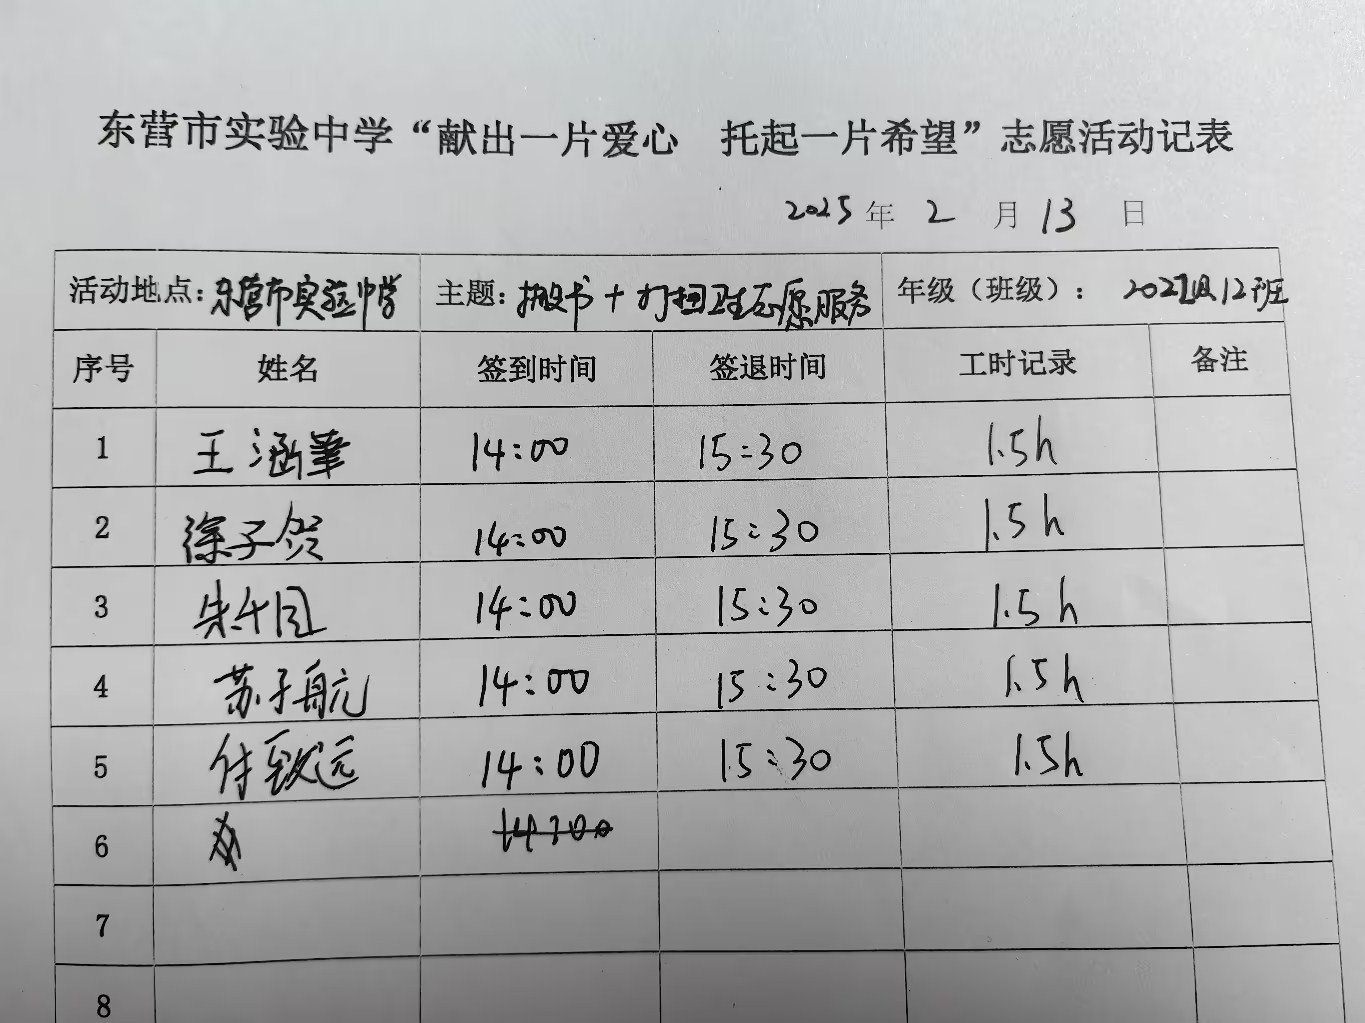 东营市实验中学“献出一片爱心 托起一片希望”志愿活动记表
2025年 2 月 13 日
活动地点：东营市实验中学 主题：搬书+打扫卫生志愿服务 年级（班级）：2022级12班
序号 姓名 签到时间 签退时间 工时记录 备注
1 王涵 14:00 15:30 1.5h
2 徐子贺 14:00 15:30 1.5h
3 朱 14:00 15:30 1.5h
4 苏子航 14:00 15:30 1.5h
5 付致远 14:00 15:30 1.5h
6 14:00
7
8